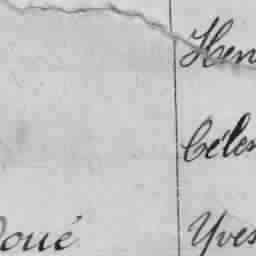 Hen
Célen
Doué Yves